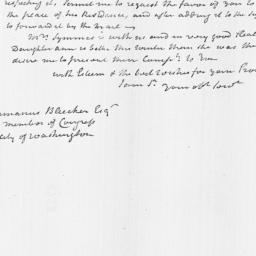 respecting it, permit me to request the favor of you to
the place of his Residence, and after adding it to the
to forward it by the mail —
Mrs. Symmes is with us and in very good
Daughter Ann is better this Winter than she was the
desire me to present their Compts. to You
with Esteem & the best Wishes for your
I am Sr. your obt. Servt.
Harmanus Bleecker Esqr
member of Congress
City of Washington